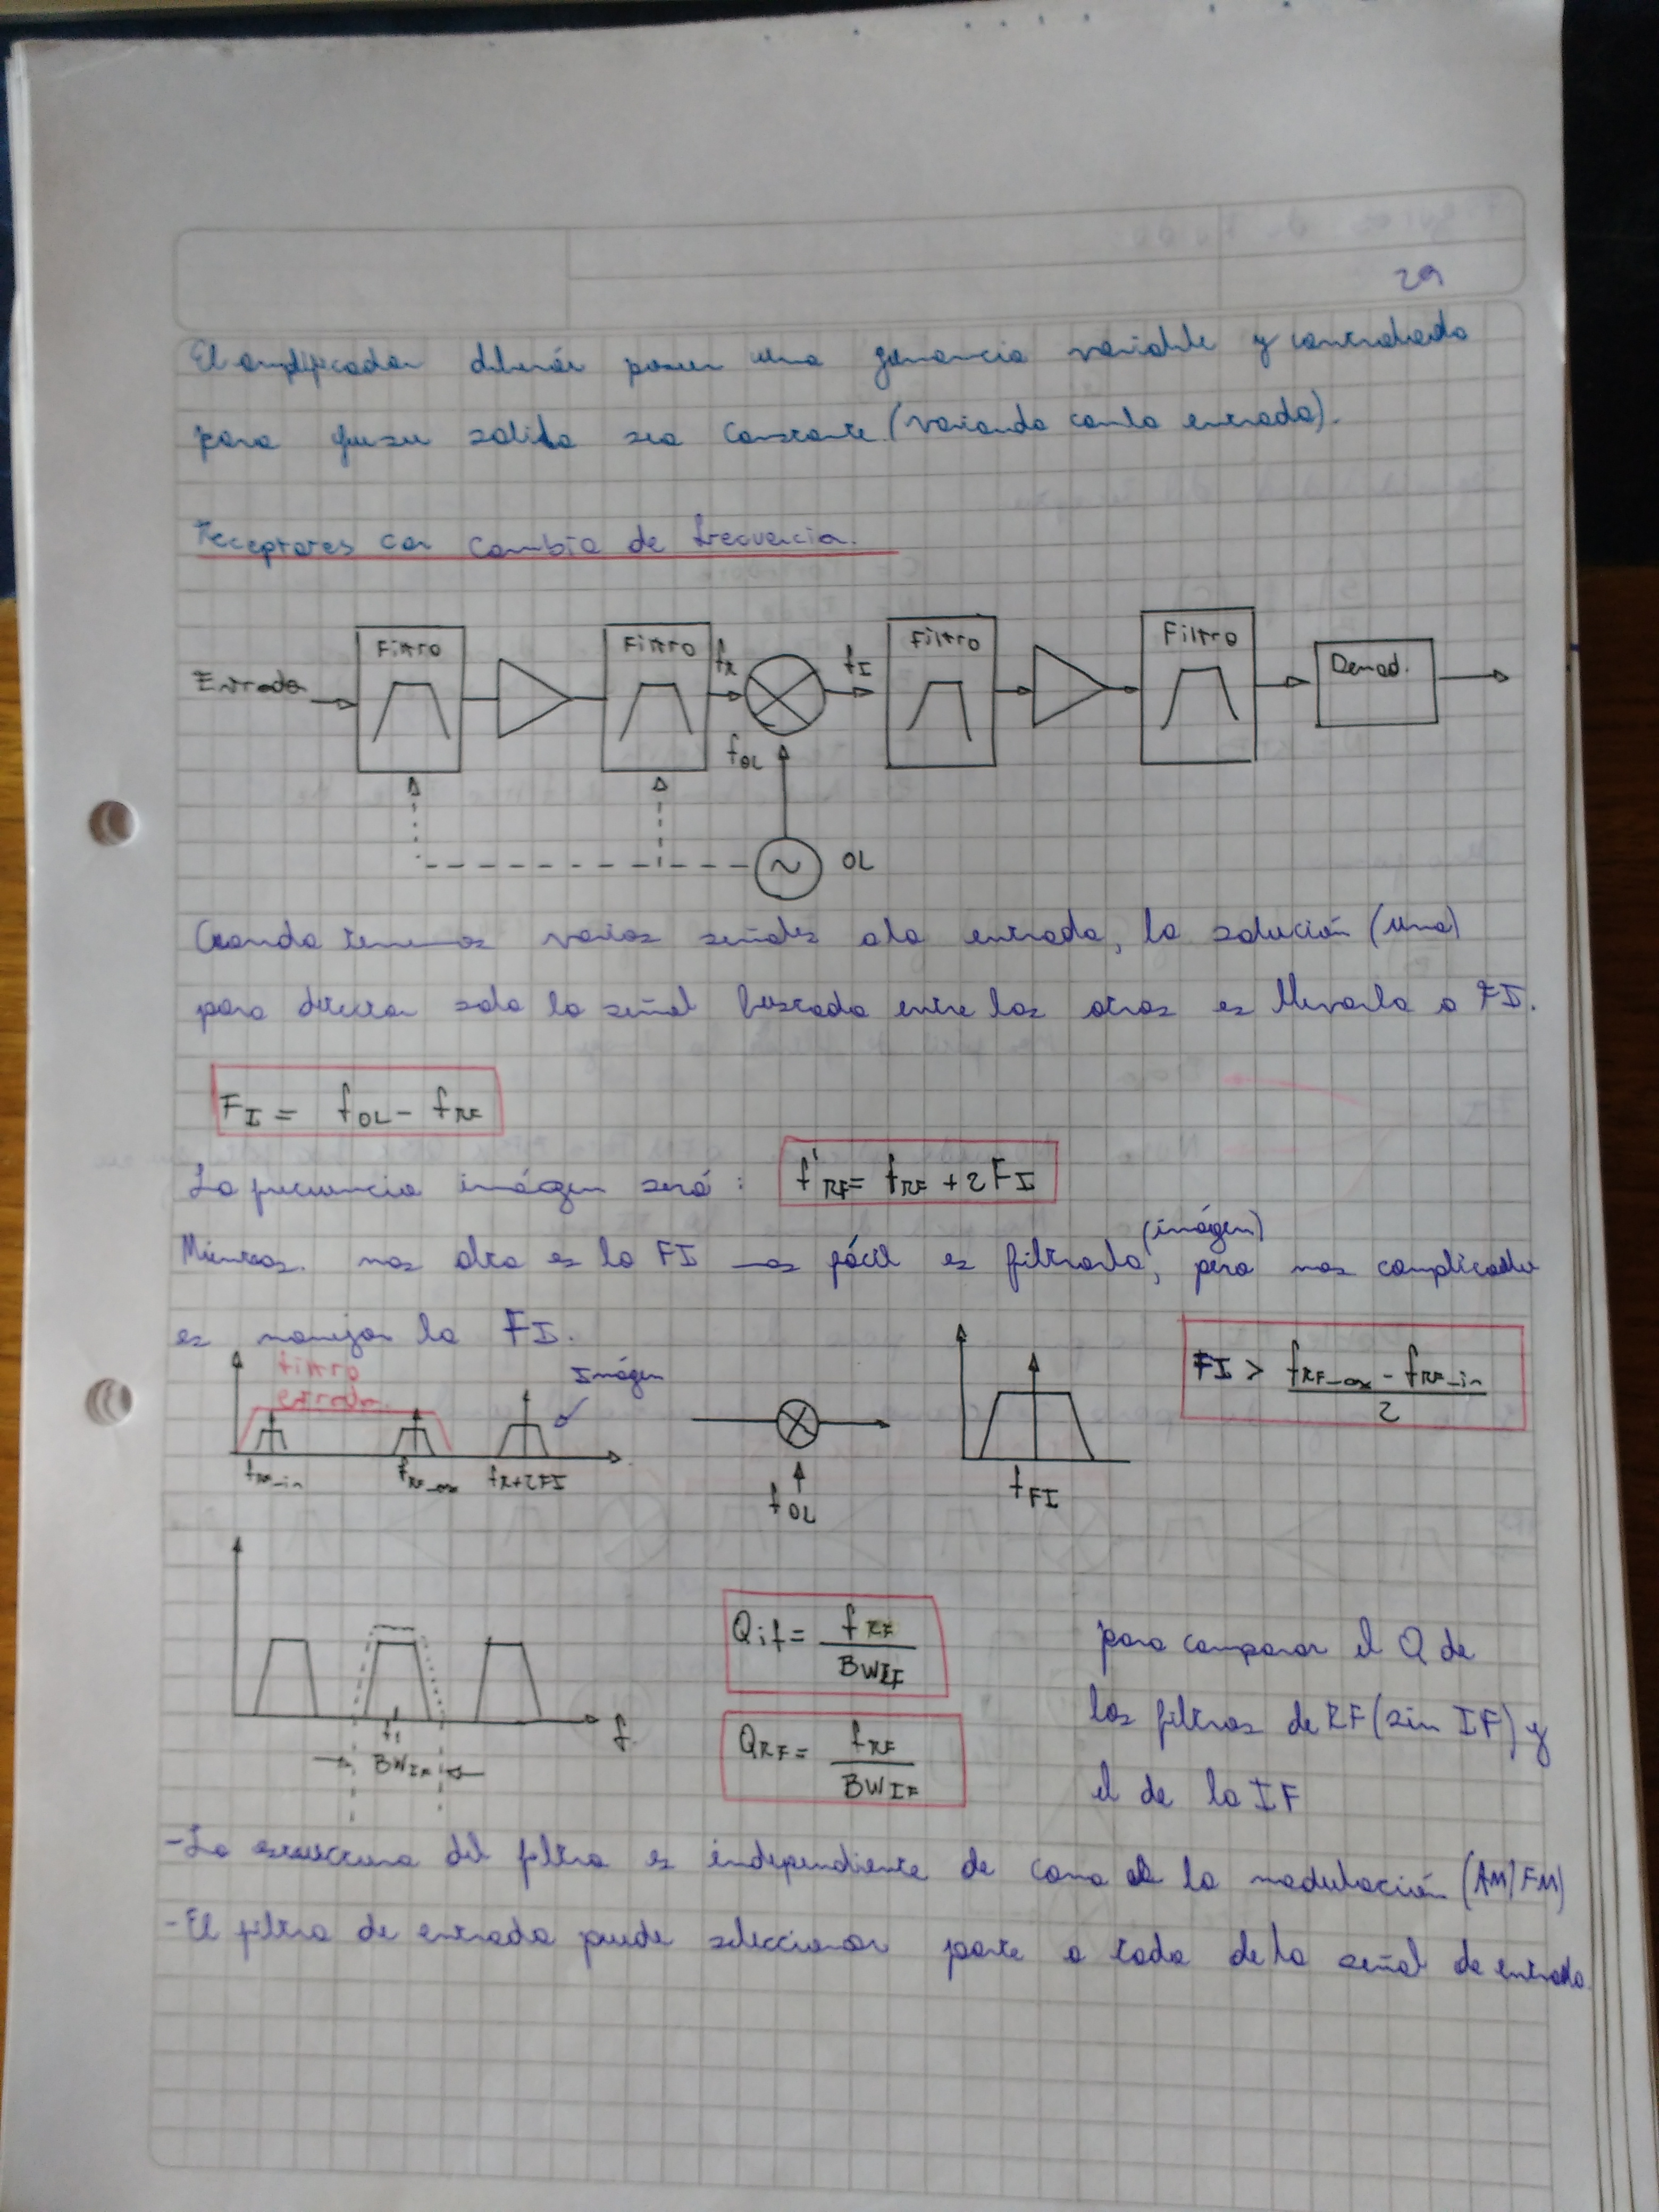 29
El amplificador deberá poseer una ganancia variable y controlada
para que su salida sea constante (variando con la entrada).
Receptores con cambio de frecuencia.
Filtro Filtro Filtro Filtro
Entrada fR fI Demod.
fOL
OL
Cuando tenemos varias señales a la entrada, la solución (una)
para detectar solo la señal buscada entre las otras es llevarla a FI.
FI = fOL - fRF
La frecuencia imágen será: f'RF = fRF + 2FI
(imágen)
Mientras mas alta es la FI mas fácil es filtrarla, pero mas complicado
es manejar la FI.
filtro
entrada
Imágen
FI > fRF_max - fRF_min
2
fRF_min fRF_max fR+2FI
fOL
fFI
Qif = fRF
BWIF
para comparar el Q de
los filtros de RF (sin IF) y
QRF = fRF
BWIF
f
BWIF
el de la IF
- La estructura del filtro es independiente de como es la modulación (AM/FM)
- El filtro de entrada puede seleccionar parte o toda de la señal de entrada.